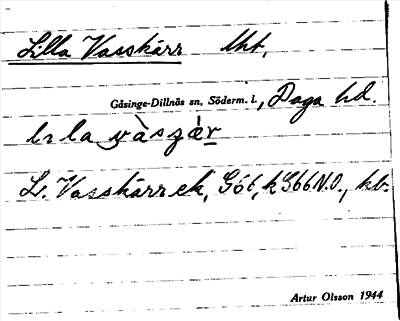 Lilla Vasskärr lht,
Gåsinge-Dillnäs sn, Söderm. l., Daga hd.
lɩla
L. Vasskärr ek, G66, kG66N.O., kb.
Artur Olsson 1944